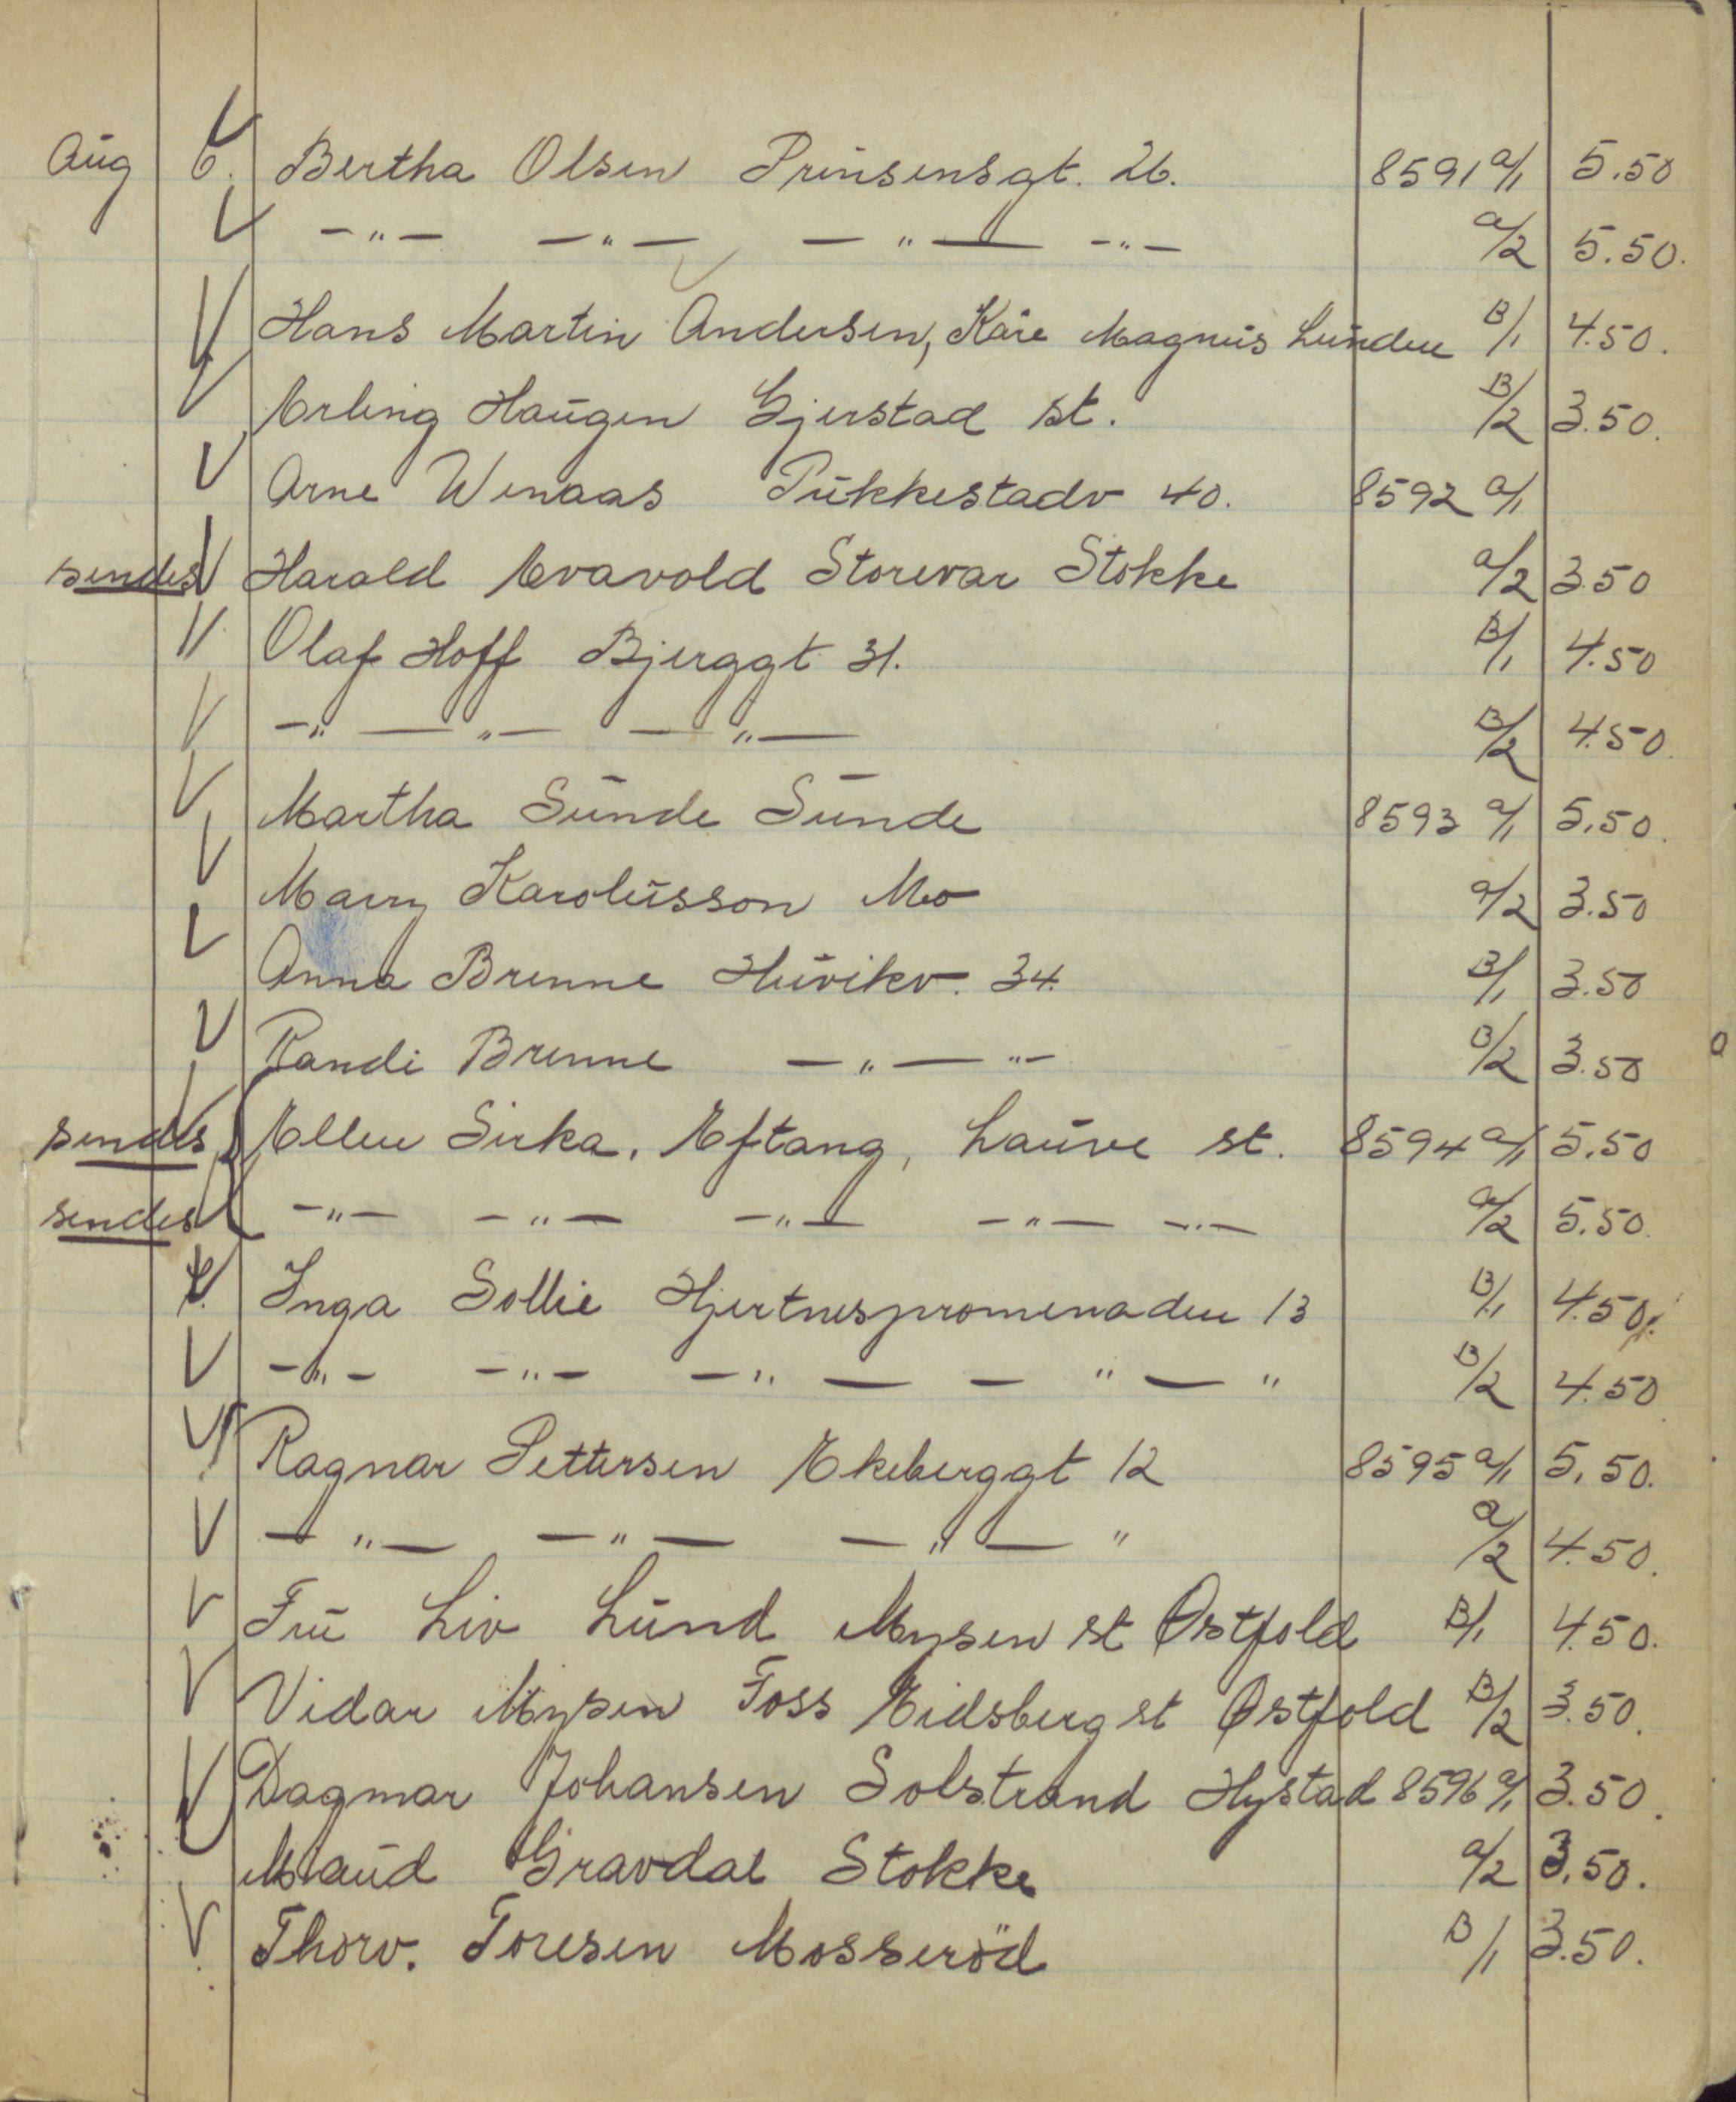 Aug 6. Bertha Olsen Prinsensgt. 26. 8591 a/1 5.50
—"— —"— —"— —"— a/2 5.50.
Hans Martin Andersen, Kåre Magnus Lunden B/1 4.50.
Erling Haugen Gjerstad st. B/2 3.50.
Arne Wenaas Pukkestadv 40. 8592 a/1
sendes Harald Evavold Storevar Stokke a/2 3.50
Olaf Hoff Bjerggt 31. B/1 4.50
—"— —"— —"— B/2 4.50.
Martha Sunde Sunde 8593 a/1 5.50.
Marry Karolusson Mo a/2 3.50
Anna Brenne Huvikv. 34. B/1 3.50
Randi Brenne —"— "— B/2 3.50
sendes Ellen Sirka, Eftang, Lauve st. 8594 a/1 5.50
sendes —"— —"— —"— —"— —"— a/2 5.50.
Inga Sollie Hjertnespromenaden 13 B/1 4.50.
—"— —"— —"— — " — " B/2 4.50
Ragnar Pettersen Ekeberggt 12 8595 a/1 5.50.
—"— —"— —"— " a/2 4.50.
Frū Liv Lund Mysen st Østfold B/1 4.50.
Vidar Mysen Foss Eidsberg st Østfold B/2 3.50.
Dagmar Johansen Solstrand Hystad 8596 a/1 3.50.
Maud Gravdal Stokke a/2 3.50.
Thorv. Toresen Mosseröd B/1 3.50.